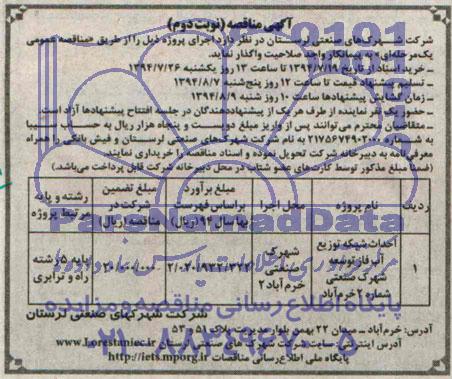 آگهی مناقصه (نوبت دوم)
شرکت شهرکهای صنعتی لرستان در نظر دارد اجرای پروژه ذیل را از طریق «مناقصه عمومی
یک‌مرحله‌ای» به پیمانکار واجد صلاحیت واگذار نماید.
ـ خرید اسناد از تاریخ ۱۳۹۴/۷/۱۹ تا ساعت ۱۳ روز یکشنبه ۱۳۹۴/۷/۲۶
ـ تسلیم پیشنهاد قیمت تا ساعت ۱۲ روز پنج‌شنبه ۱۳۹۴/۸/۷
ـ زمان گشایش پیشنهادها ساعت ۱۰ روز شنبه ۱۳۹۴/۸/۹
ـ حضور یک نفر نماینده از طرف هر یک از پیشنهاددهندگان در جلسه افتتاح پیشنهادها آزاد است.
ـ متقاضیان محترم می‌توانند پس از واریز مبلغ دویست و پنجاه هزار ریال به حساب سیبا
به شماره ۲۱۷۵۶۷۴۹۰۲۰۰۰ به نام شرکت شهرکهای صنعتی لرستان و فیش بانکی را همراه
معرفی‌نامه به دبیرخانه شرکت تحویل نموده و اسناد مناقصه را خریداری نمایند
(ضمناً مبلغ مذکور توسط کارت‌های عضو شتاب در محل دبیرخانه شرکت قابل پرداخت می‌باشد.)
ردیف نام پروژه محل اجرا مبلغ برآورد براساس فهرست بها سال ۹۴ (ریال) مبلغ تضمین شرکت در مناقصه (ریال) رشته و پایه مرتبط پروژه
۱ احداث شبکه توزیع آب فاز توسعه شهرک صنعتی شماره ۲ خرم‌آباد شهرک صنعتی خرم‌آباد ۲ پایه ۵ رشته راه و ترابری
شرکت شهرکهای صنعتی لرستان
آدرس: خرم‌آباد ـ میدان ۲۲ بهمن بلوار مدیریت پلاک ۵۱ و ۵۳
آدرس اینترنتی: سایت شرکت شهرک های صنعتی لرستان www.Lorestaniec.ir
پایگاه ملی اطلاع‌رسانی مناقصات http://iets.mporg.ir
ParsNamadData
پایگاه اطلاع رسانی مناقصه و مزایده